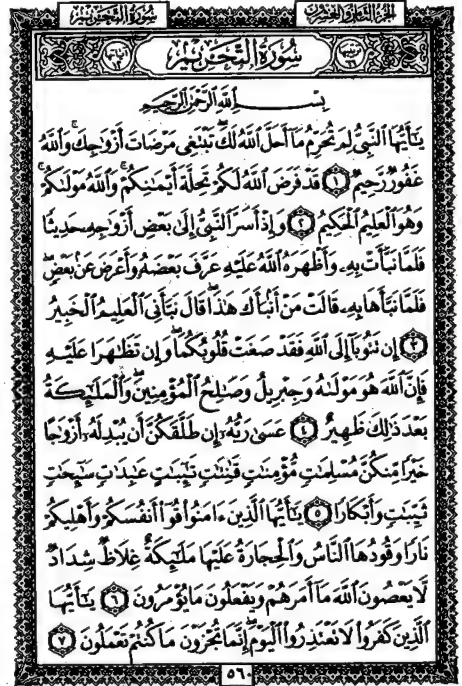 سُورَةُ التَّحْرِيمِ
الجُزءُ الثَّامِنُ وَالعِشْرُونَ
سُورَةُ التَّحْرِيمِ
بِسْمِ اللَّهِ الرَّحْمَٰنِ الرَّحِيمِ
يَٰٓأَيُّهَا ٱلنَّبِىُّ لِمَ تُحَرِّمُ مَآ أَحَلَّ ٱللَّهُ لَكَ ۖ تَبْتَغِى مَرْضَاتَ أَزْوَٰجِكَ ۚ وَٱللَّهُ
غَفُورٌ رَّحِيمٌ ١ قَدْ فَرَضَ ٱللَّهُ لَكُمْ تَحِلَّةَ أَيْمَٰنِكُمْ ۚ وَٱللَّهُ مَوْلَىٰكُمْ ۖ
وَهُوَ ٱلْعَلِيمُ ٱلْحَكِيمُ ٢ وَإِذْ أَسَرَّ ٱلنَّبِىُّ إِلَىٰ بَعْضِ أَزْوَٰجِهِۦ حَدِيثًا
فَلَمَّا نَبَّأَتْ بِهِۦ وَأَظْهَرَهُ ٱللَّهُ عَلَيْهِ عَرَّفَ بَعْضَهُۥ وَأَعْرَضَ عَنۢ بَعْضٍ ۖ
فَلَمَّا نَبَّأَهَا بِهِۦ قَالَتْ مَنْ أَنۢبَأَكَ هَٰذَا ۖ قَالَ نَبَّأَنِىَ ٱلْعَلِيمُ ٱلْخَبِيرُ
٣ إِن تَتُوبَآ إِلَى ٱللَّهِ فَقَدْ صَغَتْ قُلُوبُكُمَا ۖ وَإِن تَظَٰهَرَا عَلَيْهِ
فَإِنَّ ٱللَّهَ هُوَ مَوْلَىٰهُ وَجِبْرِيلُ وَصَٰلِحُ ٱلْمُؤْمِنِينَ ۖ وَٱلْمَلَٰٓئِكَةُ
بَعْدَ ذَٰلِكَ ظَهِيرٌ ٤ عَسَىٰ رَبُّهُۥٓ إِن طَلَّقَكُنَّ أَن يُبْدِلَهُۥٓ أَزْوَٰجًا
خَيْرًا مِّنكُنَّ مُسْلِمَٰتٍ مُّؤْمِنَٰتٍ قَٰنِتَٰتٍ تَٰٓئِبَٰتٍ عَٰبِدَٰتٍ سَٰٓئِحَٰتٍ
ثَيِّبَٰتٍ وَأَبْكَارًا ٥ يَٰٓأَيُّهَا ٱلَّذِينَ ءَامَنُوا۟ قُوٓا۟ أَنفُسَكُمْ وَأَهْلِيكُمْ
نَارًا وَقُودُهَا ٱلنَّاسُ وَٱلْحِجَارَةُ عَلَيْهَا مَلَٰٓئِكَةٌ غِلَاظٌ شِدَادٌ
لَّا يَعْصُونَ ٱللَّهَ مَآ أَمَرَهُمْ وَيَفْعَلُونَ مَا يُؤْمَرُونَ ٦ يَٰٓأَيُّهَا
ٱلَّذِينَ كَفَرُوا۟ لَا تَعْتَذِرُوا۟ ٱلْيَوْمَ ۖ إِنَّمَا تُجْزَوْنَ مَا كُنتُمْ تَعْمَلُونَ ٧
٥٦٠